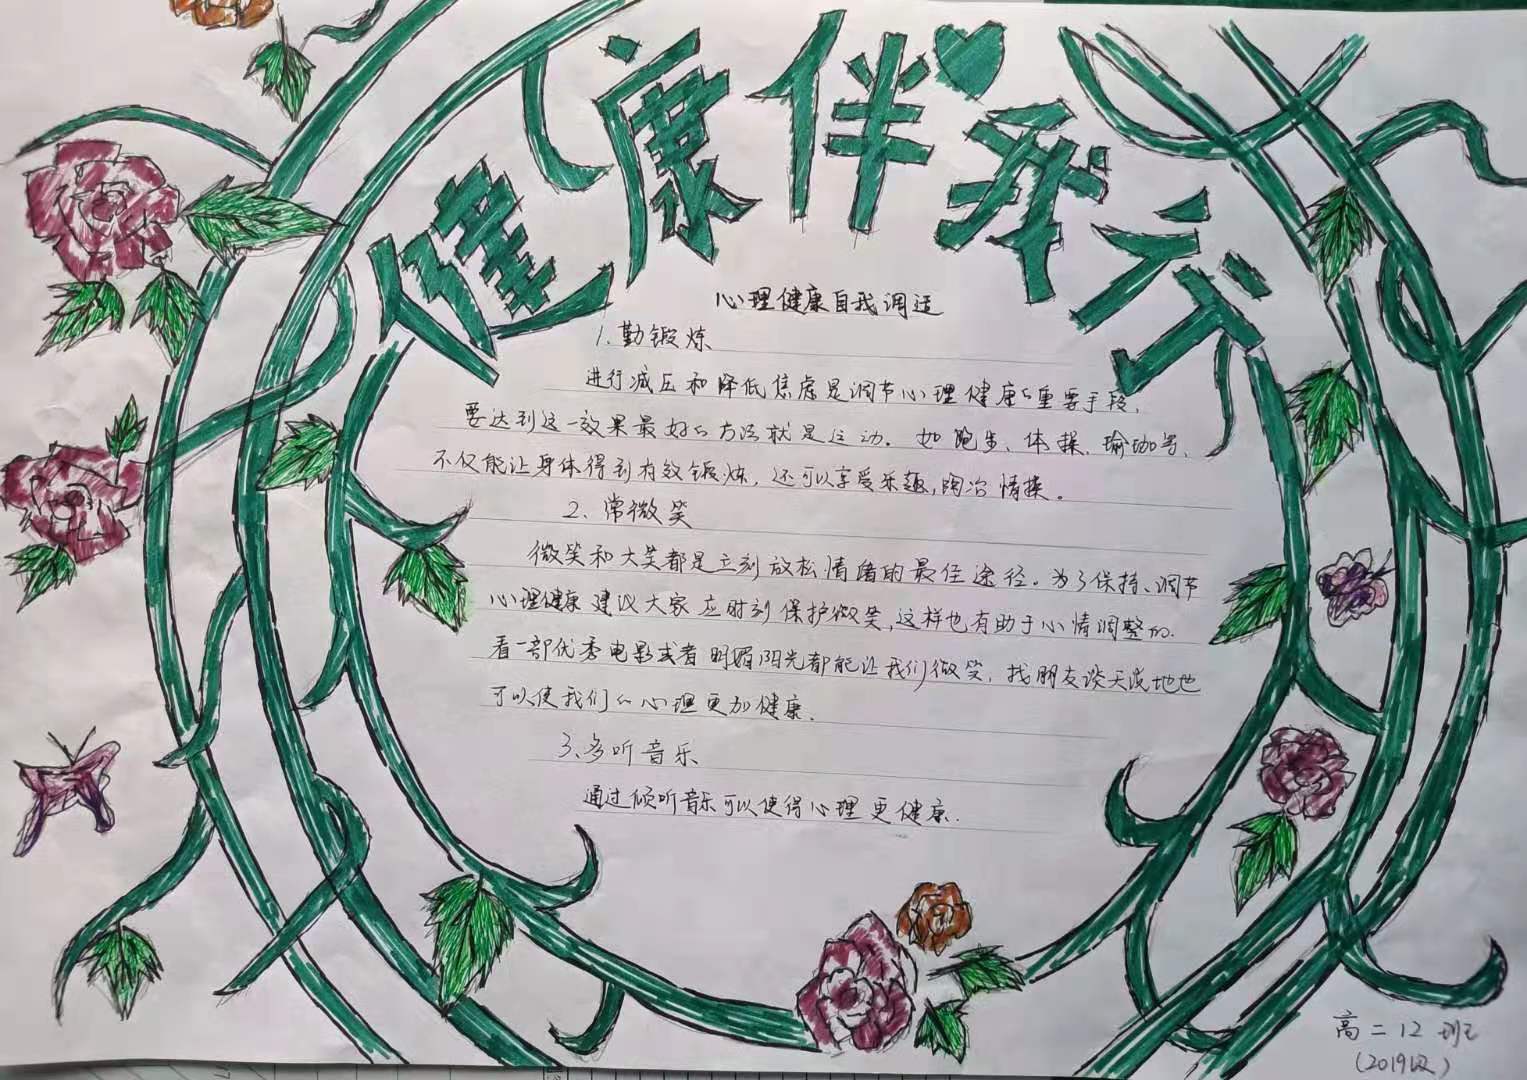 健康伴我行
心理健康自我调适
1.勤锻炼
进行减压和降低焦虑是调节心理健康的重要手段,
要达到这一效果最好的方法就是运动。如跑步、体操、瑜珈等,
不仅能让身体得到有效锻炼,还可以享受乐趣,陶冶情操。
2、常微笑
微笑和大笑都是立刻放松情绪的最佳途径。为了保持、调节
心理健康建议大家应时刻保护微笑,这样也有助于心情调整的.
看一部优秀电影或者明媚阳光都能让我们微笑,找朋友谈天说地也
可以使我们的心理更加健康.
3、多听音乐
通过倾听音乐可以使得心理更健康.
高二12班
(2019级)